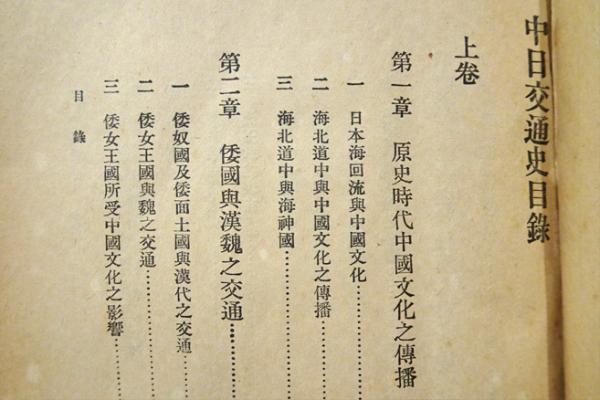 中日交通史目錄
上卷
第一章 原史時代中國文化之傳播
一 日本海回流與中國文化…………
二 海北道中與中國文化之傳播…………
三 海北道中與海神國…………
第二章 倭國與漢魏之交通…………
一 倭奴國及倭面土國與漢代之交通…………
二 倭女王國與魏之交通…………
三 倭女王國所受中國文化之影響…………
目錄